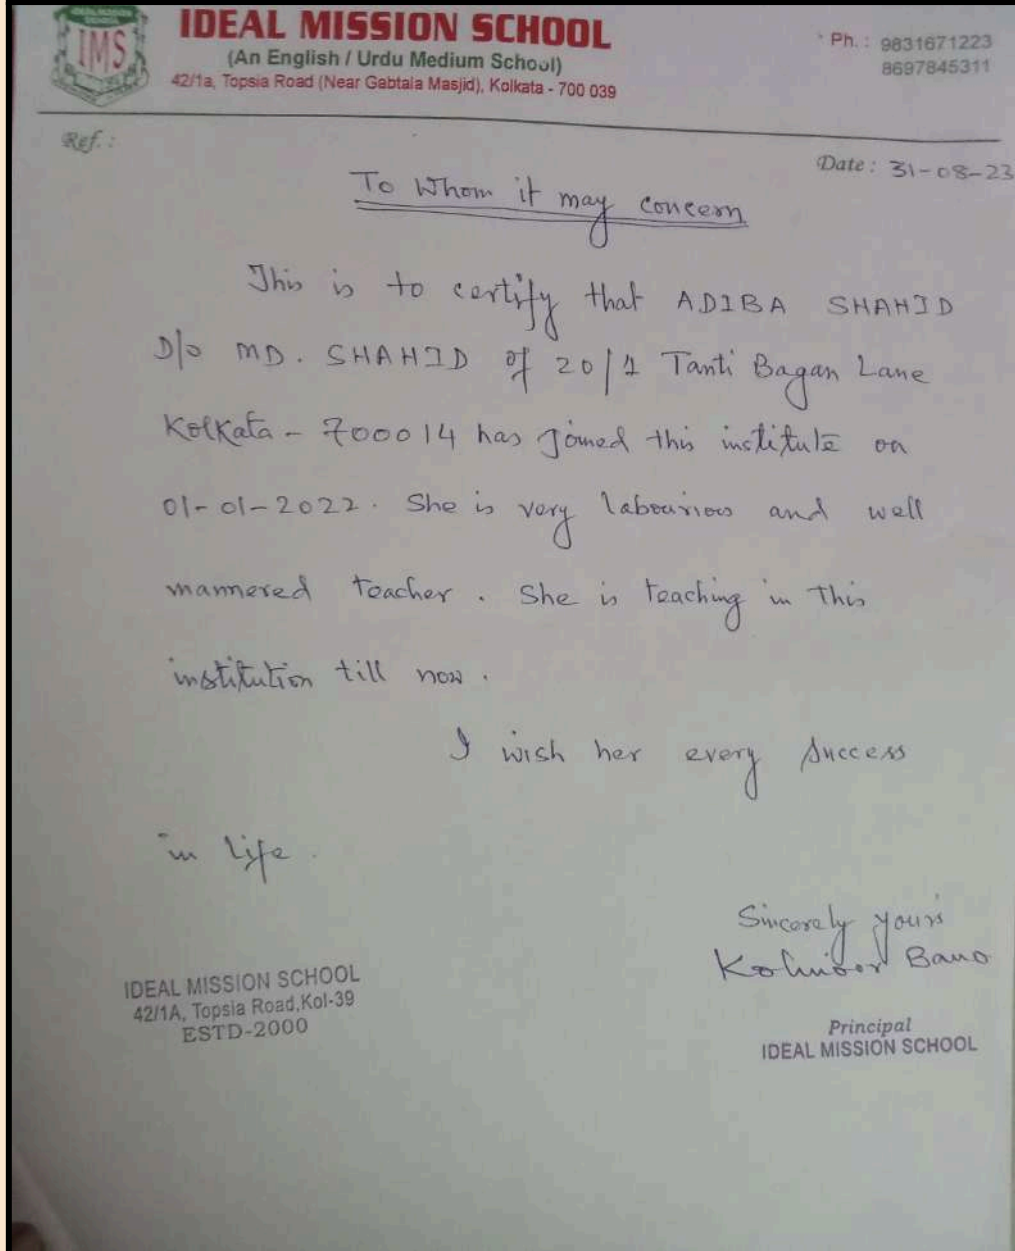 IMS
IDEAL MISSION SCHOOL
(An English / Urdu Medium School)
42/1a, Topsia Road (Near Gabtala Masjid), Kolkata - 700 039
Ph. : 9831671223
8697845311
Ref. :
Date : 31-08-23
To Whom it may concern
This is to certify that ADIBA SHAHID
D/o MD. SHAHID of 20/1 Tanti Bagan Lane
Kolkata - 700014 has joined this institute on
01-01-2022. She is very labourious and well
mannered teacher. She is teaching in this
institution till now.
I wish her every success
in life.
Sincerely yours
Kohinoor Bano
IDEAL MISSION SCHOOL
42/1A, Topsia Road,Kol-39
ESTD-2000
Principal
IDEAL MISSION SCHOOL